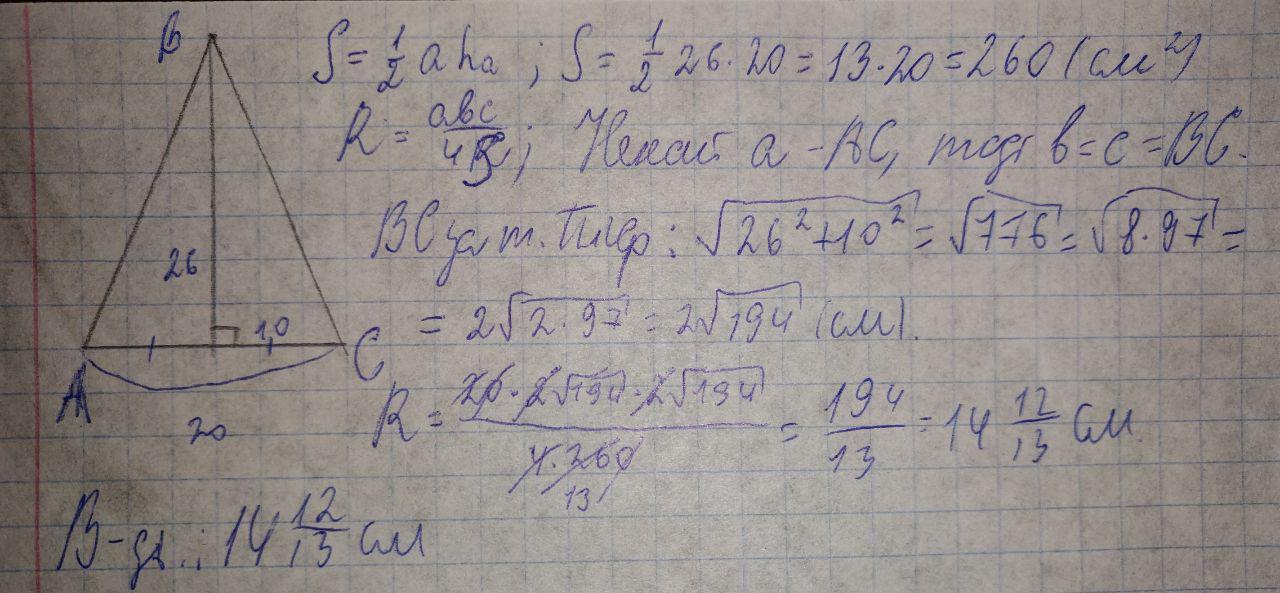 B
S = 1/2 a hₐ ; S = 1/2 26·20 = 13·20 = 260 (см²)
R = abc/4S ; Нехай a - AC, тоді b = c = BC.
BC за т. Піфр : √(26²+10²) = √776 = √(8·97) =
26
= 2√(2·97) = 2√194 (см).
10
A
C
20
R = (20·2√194·2√194)/(4·260) = 194/13 = 14 12/13 см.
13
В-дь.: 14 12/13 см